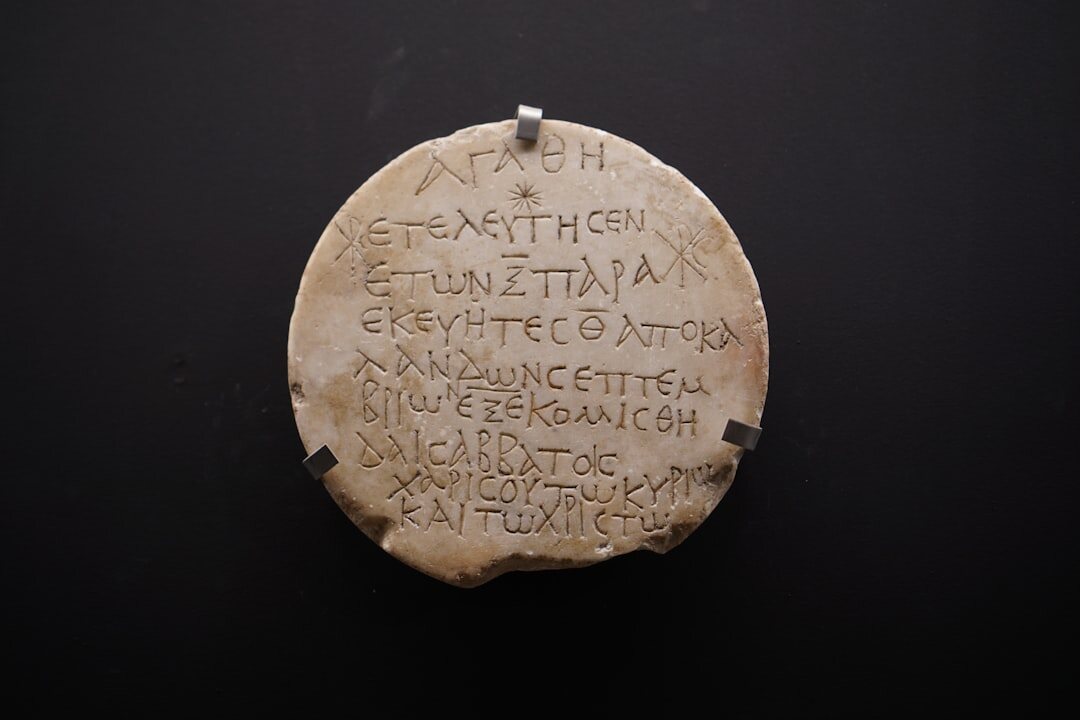 ΑΓΑΘΗ
ΕΤΕΛΕΥΤΗCΕΝ
ΕΤΩΝ Ξ̅ ΠΑΡΑ
ΕΚΕΥΗΤΕC Θ̅ ΑΠΟΚΑ
ΛΑΝΔΩΝ CΕΠΤΕΜ
ΒΡΙΩΝ ΕΞΕΚΟΜΙCΘΗ
ΔΑΙCΑΒΒΑΤΟΙC
ΧΑΡΙC ΟΥ ΤΩ ΚΥΡΙΩ
ΚΑΙ ΤΩ ΧΡΙCΤΩ